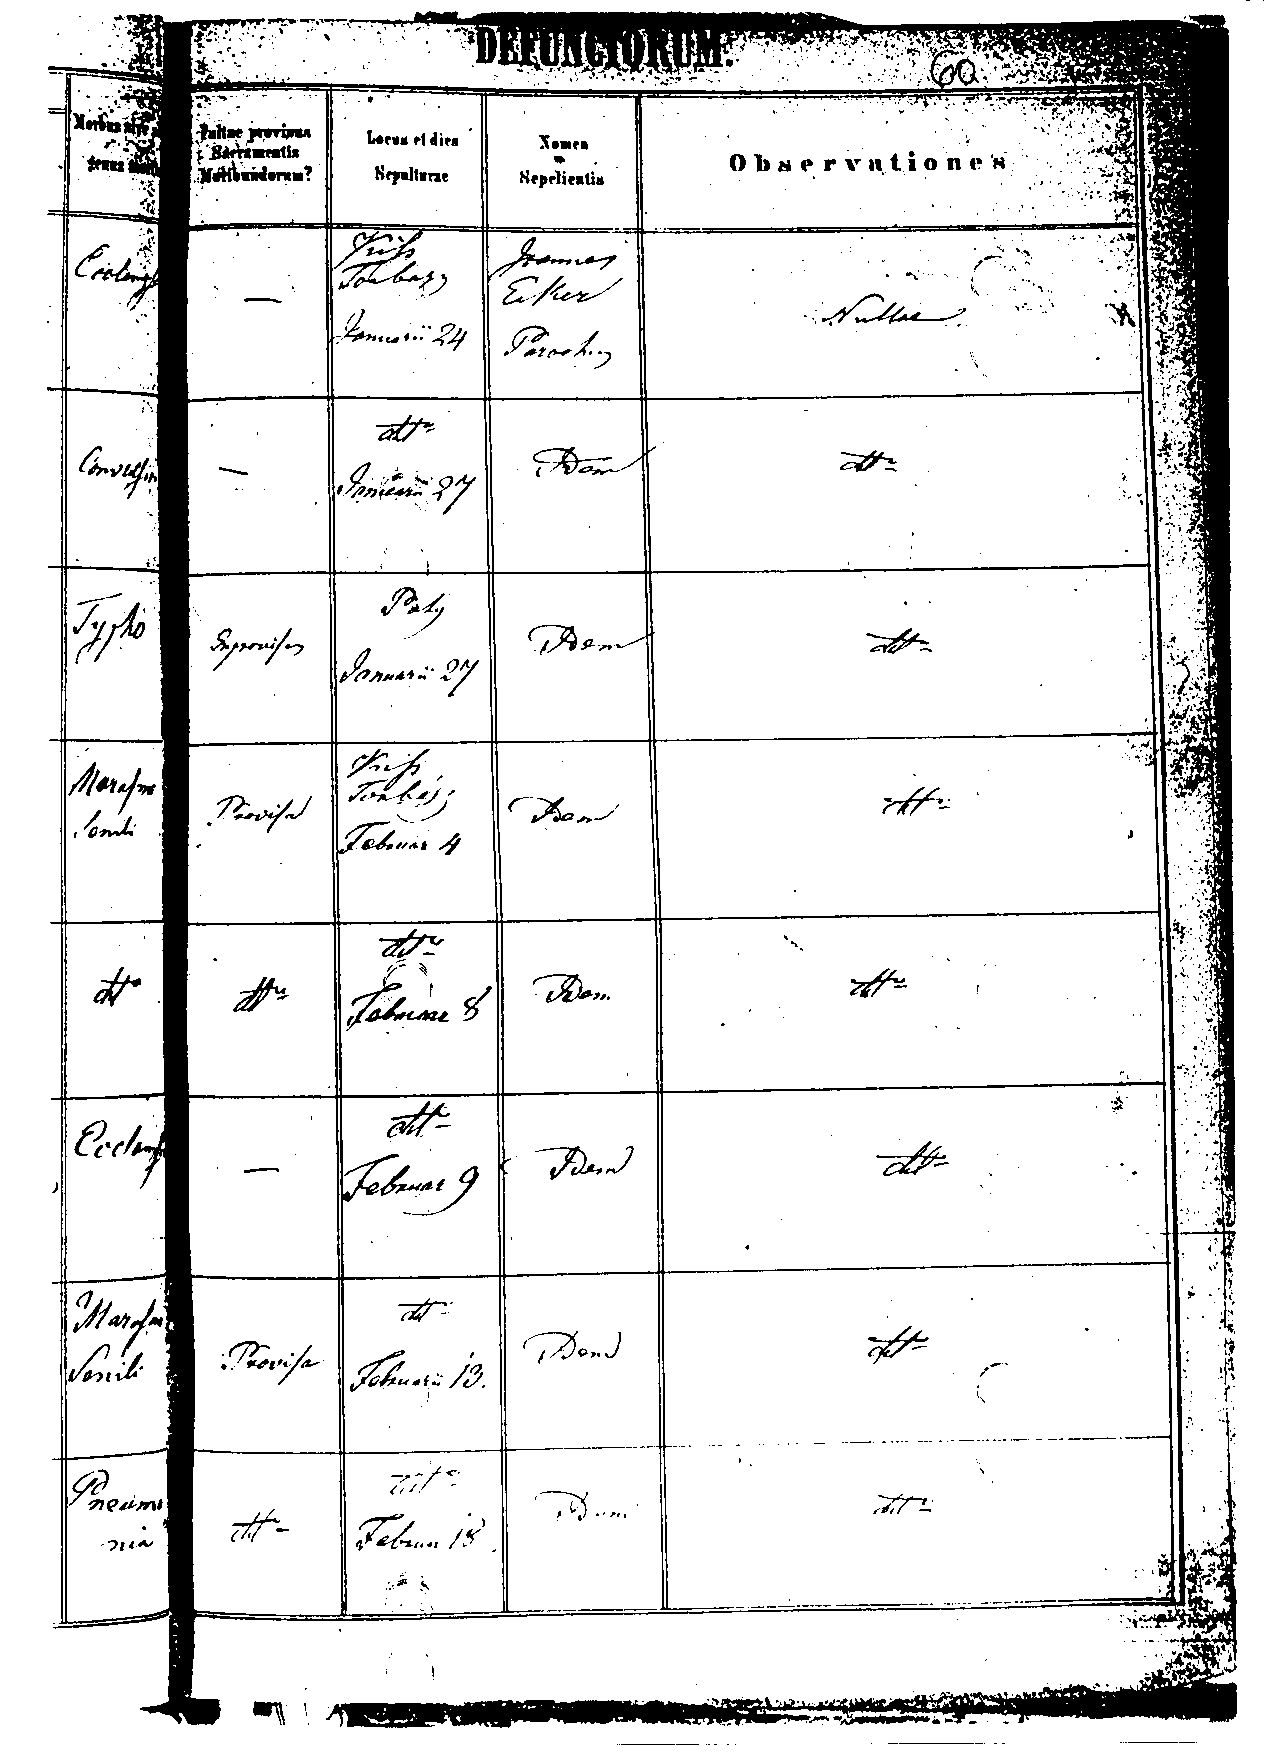 DEFUNCTORUM.
60
Morbus sive
genus
Fuitne provisus
Sacramentis
Moribundorum?
Locus et dies
Sepulturae
Nomen
Sepelientis
Observationes
Kiss
Torbágy
Januarii 24
Joannes
Eiker
Parochus
Nullae
—
—
dtto
Januarii 27
Idem
dtto
Typho
Improvisus
Paty
Januarii 27
Idem
dtto
Senili
Provisa
Kiss
Torbágy
Februar 4
Idem
dtto
dtto
dtto
dtto
Februar 8
Idem
dtto
—
dtto
Februar 9
Idem
dtto
Senili
Provisa
dtto
Februarii 13.
Idem
dtto
Pneumo
nia
dtto
dtto
Februar 18
Idem
dtto